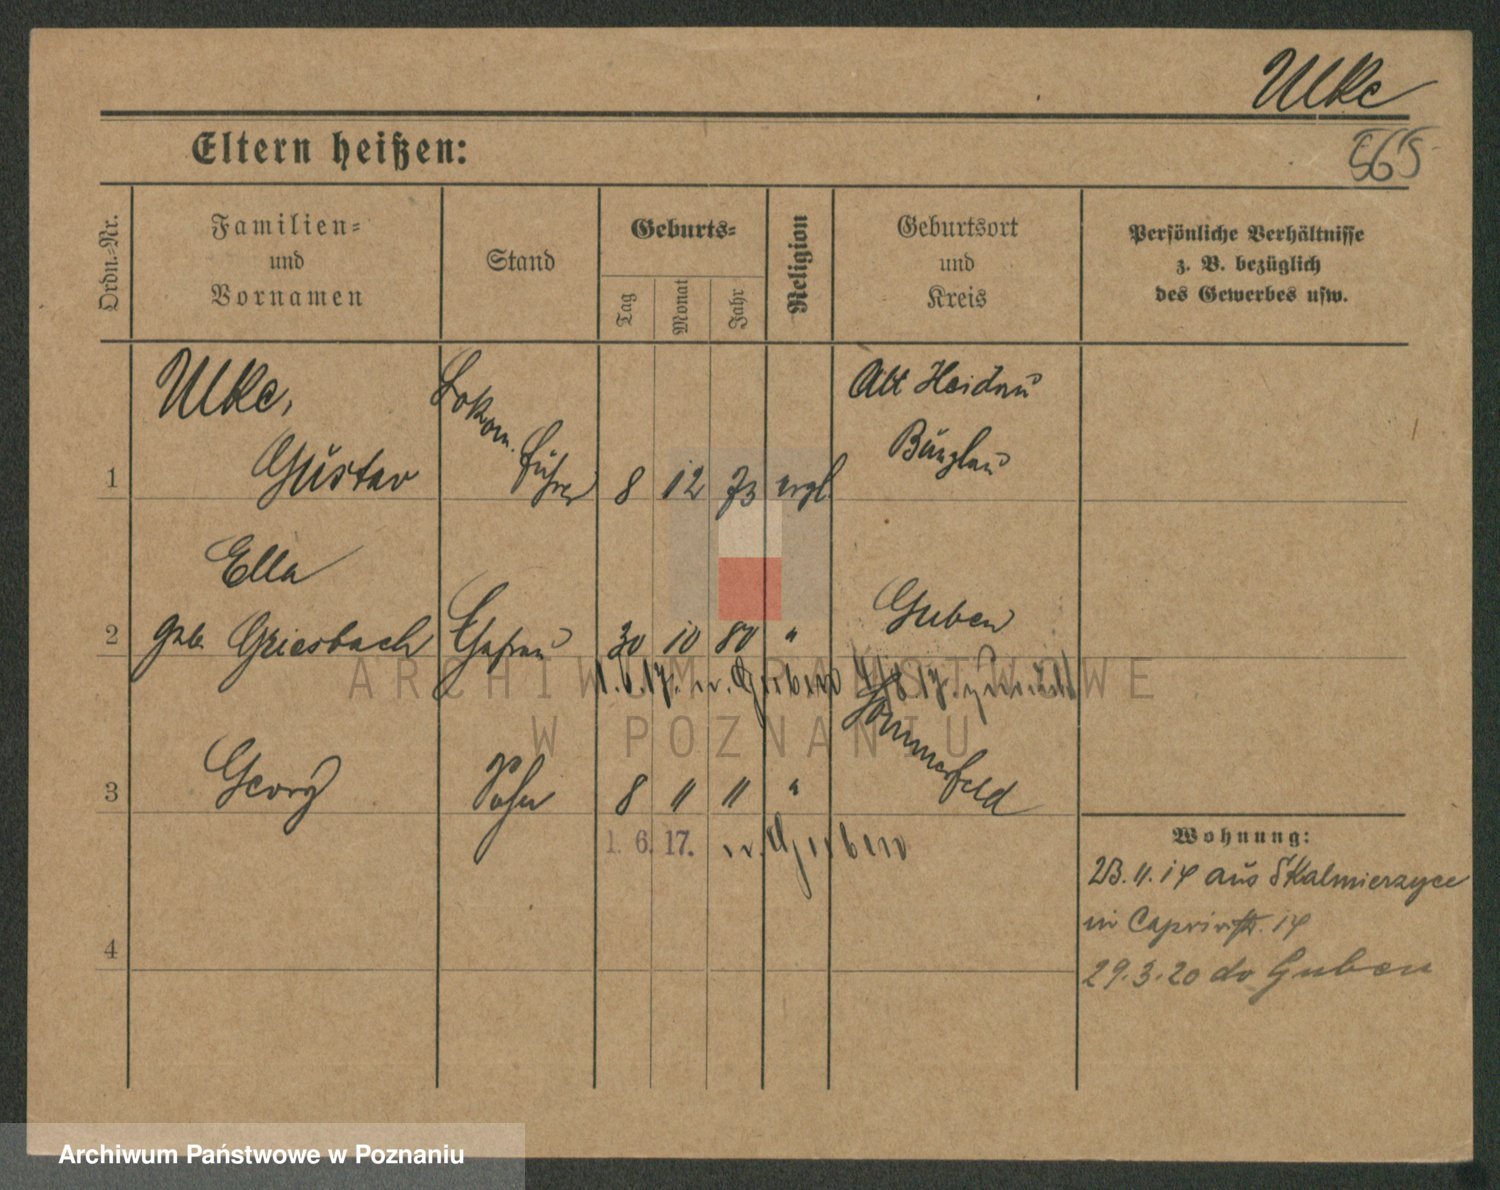 Ulke
565
Eltern heißen:
Ordn.-Nr.
Familien-
und
Vornamen
Stand
Geburts-
Tag
Monat
Jahr
Religion
Geburtsort
und
Kreis
Persönliche Verhältnisse
z. B. bezüglich
des Gewerbes usw.
Ulke, Lokom. Alt
Bunzlau
1 Gustav Führer 8 12 73 evgl.
Ella
Guben
2 geb. Griesbach Ehefrau 30 10 80 "
1.6.17. n. Guben
Sommerfeld
3 Georg Sohn 8 11 11 "
1. 6. 17. n. Guben
4
Wohnung:
23.11.14 aus Skalmierzyce
in Caprivistr. 14
29.3.20 do Guben
ARCHIWUM PAŃSTWOWE
W POZNANIU
Archiwum Państwowe w Poznaniu